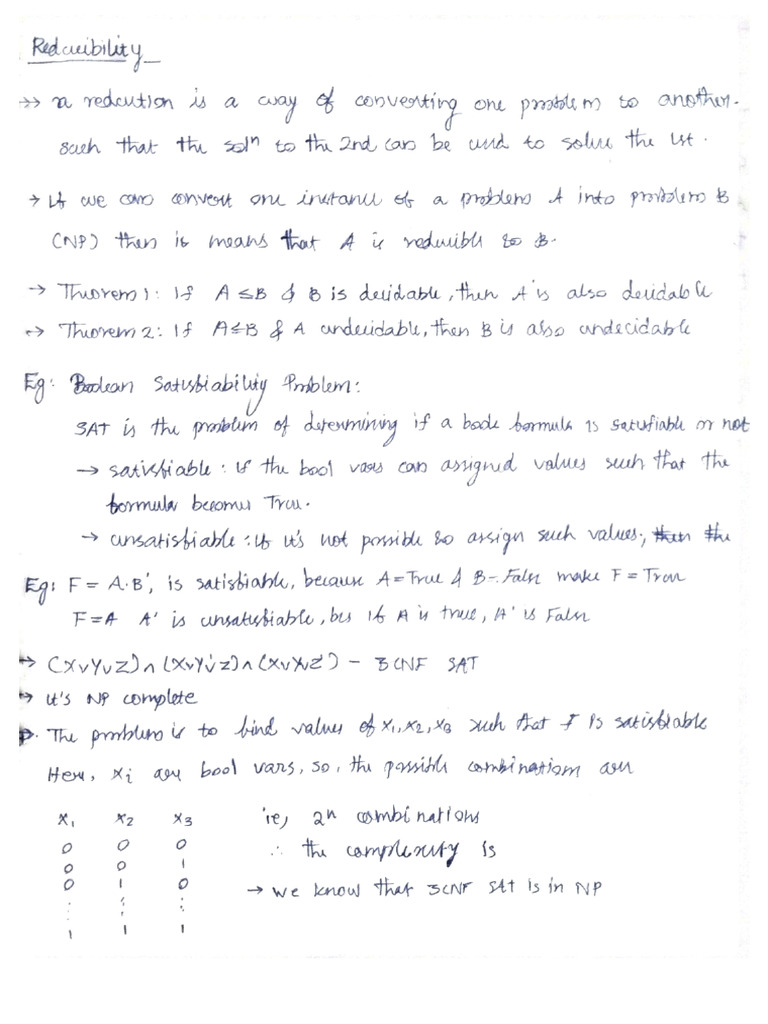 Reducibility
→→ a redcution is a way of converting one problem to another.
such that the solⁿ to the 2nd can be used to solve the 1st.
→ If we can convert one instance of a problem A into problem B
(NP) then is means that A is reducible to B.
→ Theorem 1: If A ≤ B & B is decidable, then A is also decidable
→ Theorem 2: If A ≤ B & A undecidable, then B is also undecidable
Eg: Boolean Satisfiability Problem:
SAT is the problem of determining if a boole formula is satisfiable or not
→ satisfiable: if the bool vars can assigned values such that the
formula becomes True.
→ unsatisfiable: If it's not possible to assign such values, then the
Eg: F = A.B', is satisfiable, because A=True & B=False make F = True
F=A A' is unsatisfiable, bcs if A is true, A' is False
→ (XvYvZ)∧(XvY'vZ)∧(XvYvZ') - 3CNF SAT
→ it's NP complete
The problem is to find values of x₁,x₂,x₃ such that F is satisfiable
Here, xᵢ are bool vars, so, the possible combinations are
x₁ x₂ x₃ ie, 2ⁿ combinations
0 0 0 ∴ the complexity is
0 0 1
0 1 0 → we know that 3CNF SAT is in NP
1 1 1